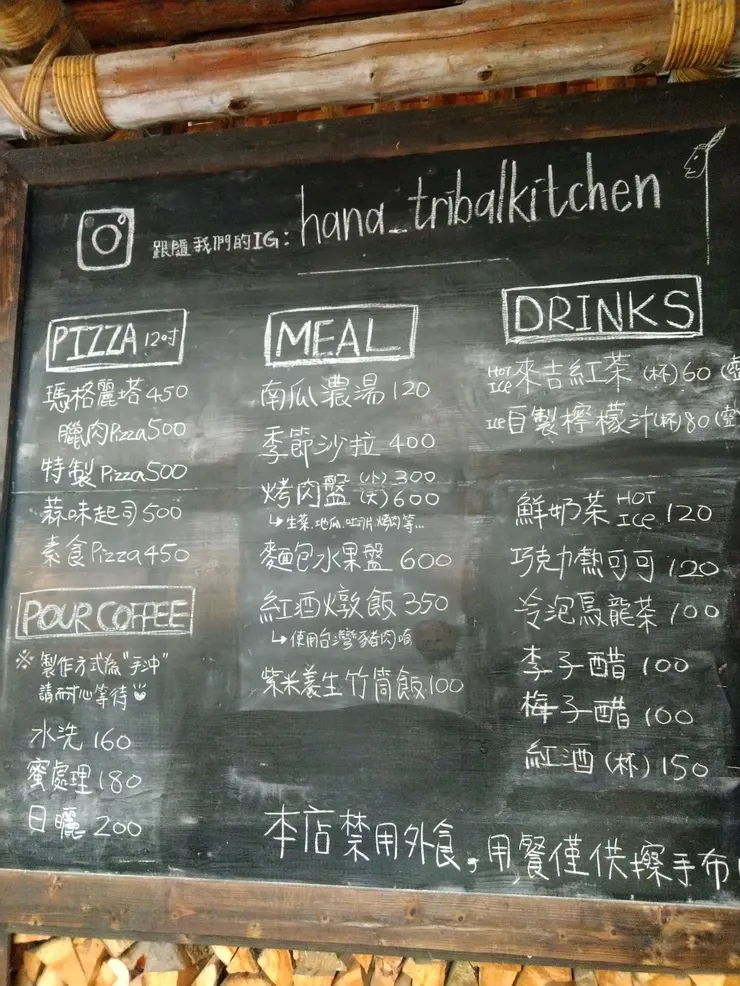 跟隨我們的IG: hana_tribalkitchen
PIZZA 12吋
瑪格麗塔 450
臘肉Pizza 500
特製Pizza 500
蒜味起司 500
素食Pizza 450
POUR COFFEE
※ 製作方式為"手沖"
請耐心等待
水洗 160
蜜處理 180
日曬 200
MEAL
南瓜濃湯 120
季節沙拉 400
烤肉盤 (小) 300
(大) 600
↳生菜.地瓜.吐司片.烤肉等...
麵包水果盤 600
紅酒燉飯 350
↳使用台灣豬肉唷
紫米養生竹筒飯 100
DRINKS
HOT ICE 來吉紅茶 (杯) 60 (壺
ICE 自製檸檬汁 (杯) 80 (壺
鮮奶茶 HOT ICE 120
巧克力熱可可 120
冷泡烏龍茶 100
李子醋 100
梅子醋 100
紅酒 (杯) 150
本店禁用外食,用餐僅供擦手布